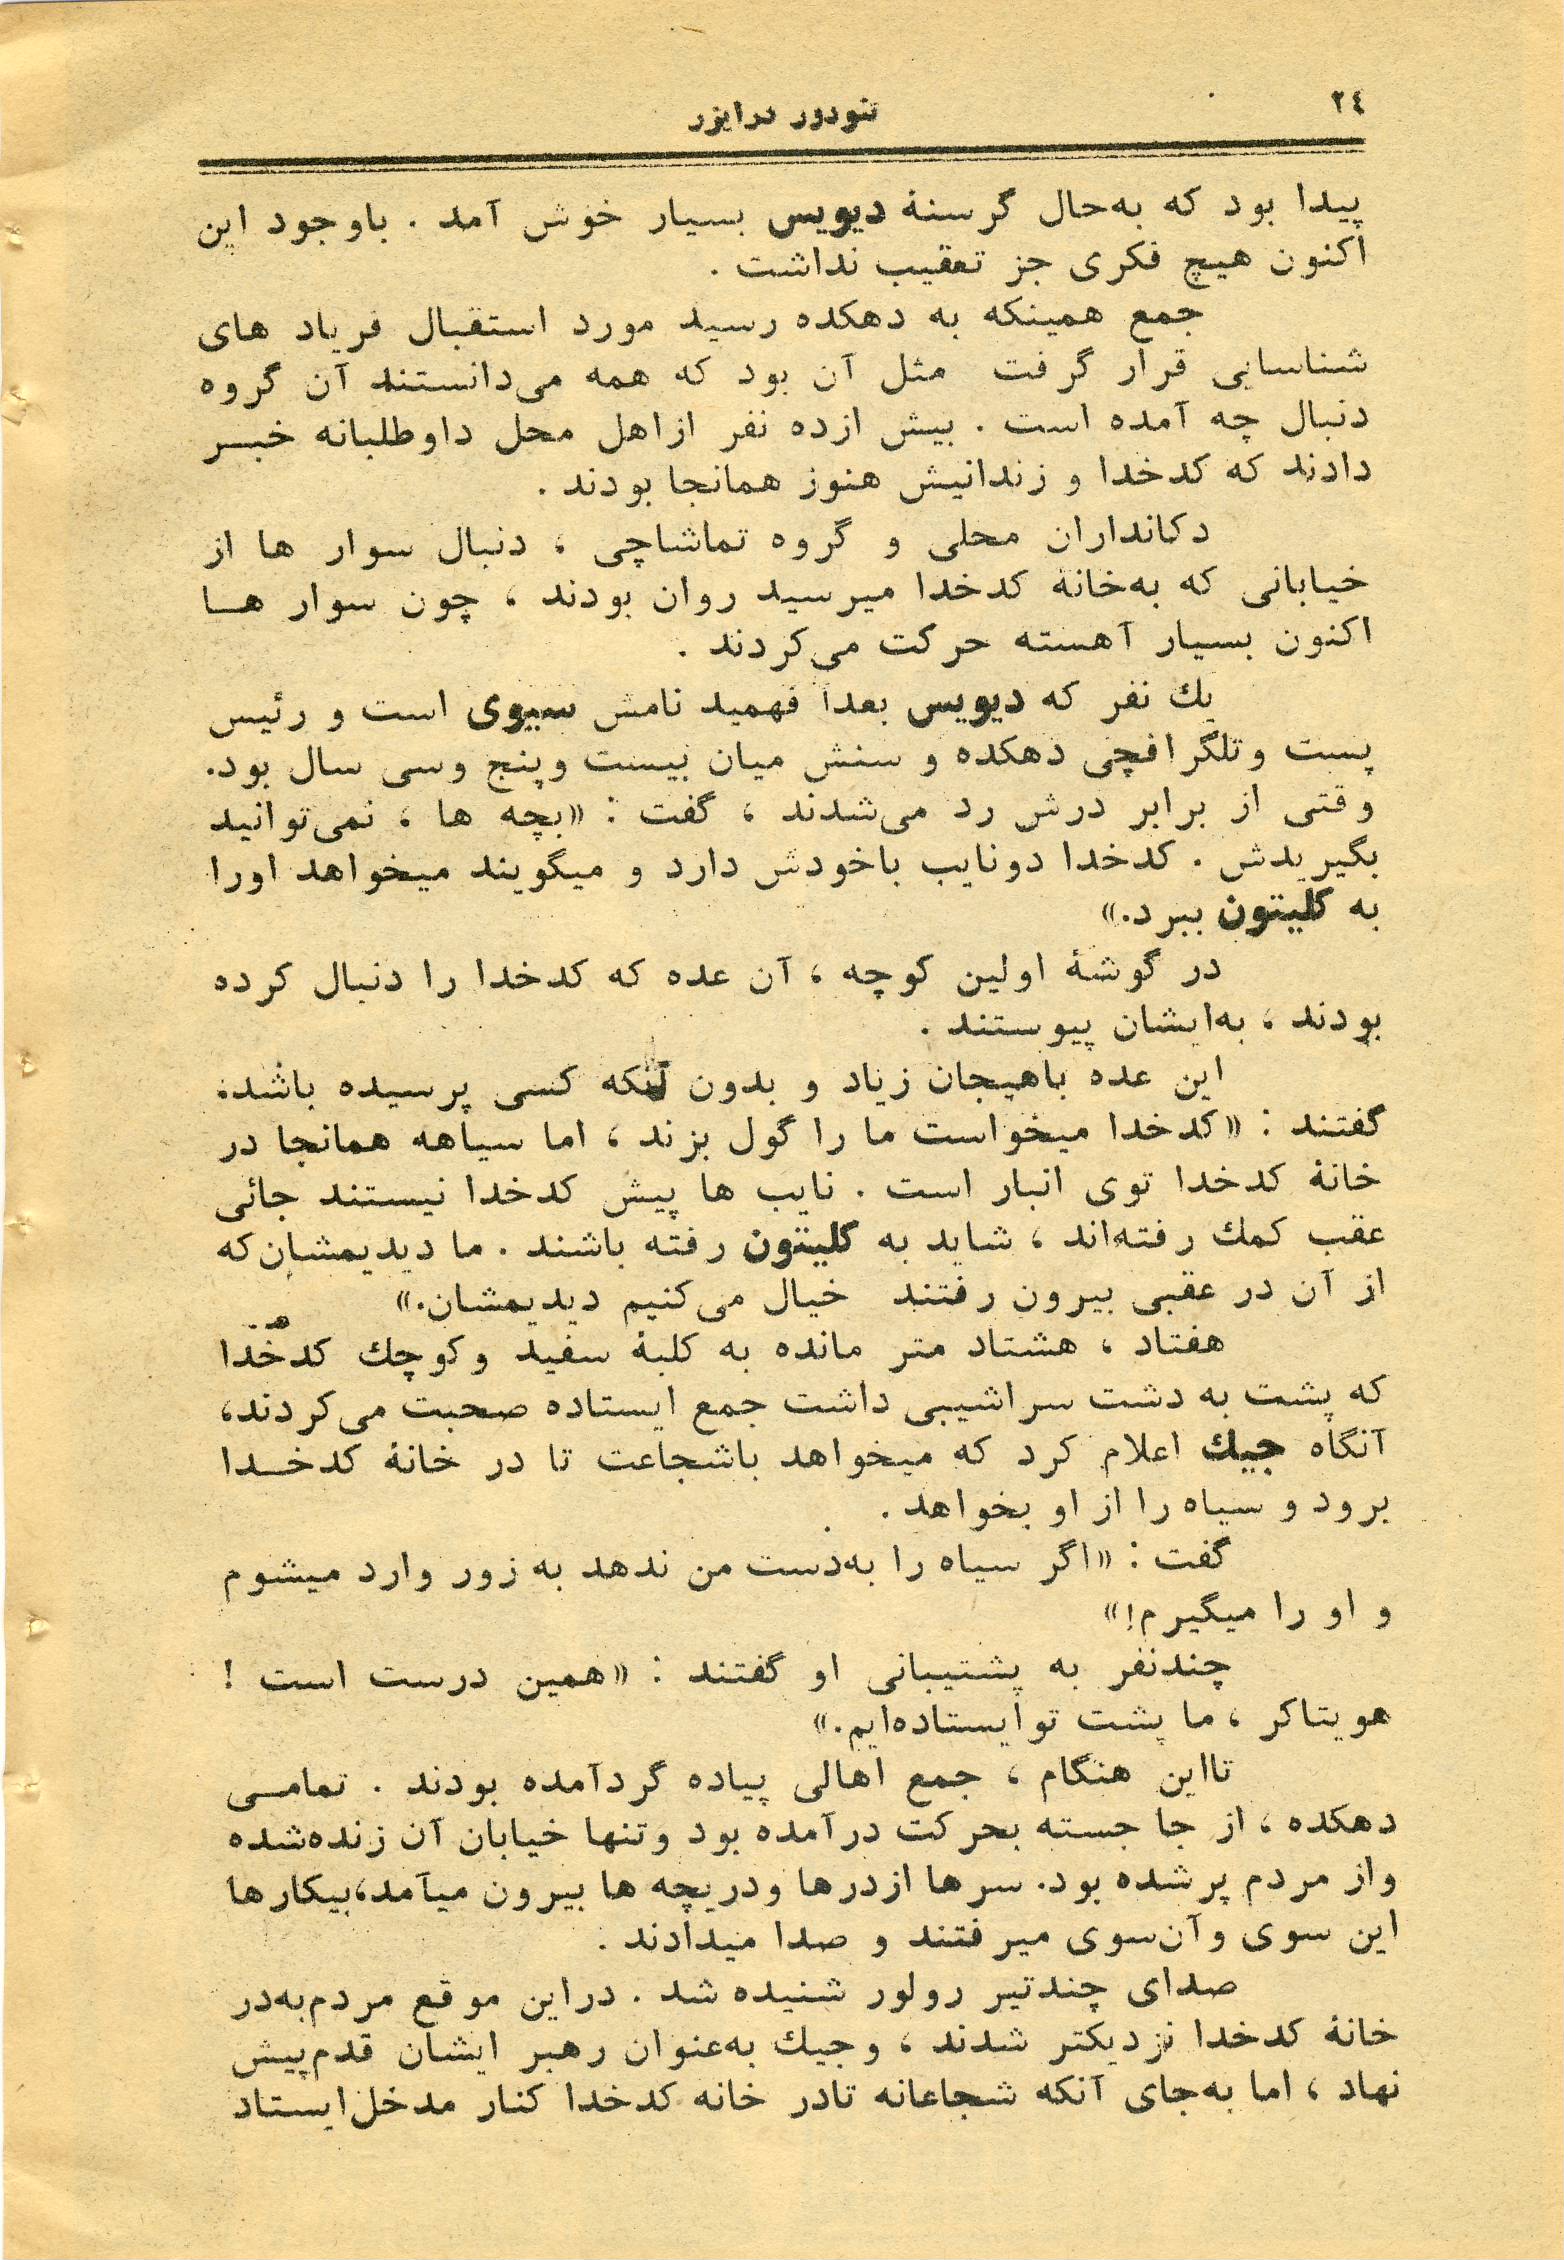 ٢٤
تئودور درایزر
پیدا بود که به‌حال گرسنهٔ دیویس بسیار خوش آمد . باوجود این
اکنون هیچ فکری جز تعقیب نداشت .
جمع همینکه به دهکده رسید مورد استقبال فریاد های
شناسایی قرار گرفت مثل آن بود که همه می‌دانستند آن گروه
دنبال چه آمده است . بیش ازده نفر ازاهل محل داوطلبانه خبر
دادند که کدخدا و زندانیش هنوز همانجا بودند .
دکانداران محلی و گروه تماشاچی ، دنبال سوار ها از
خیابانی که به‌خانهٔ کدخدا میرسید روان بودند ، چون سوار ها
اکنون بسیار آهسته حرکت می‌کردند .
یك نفر که دیویس بعداً فهمید نامش سیوی است و رئیس
پست وتلگرافچی دهکده و سنش میان بیست وپنج وسی سال بود.
وقتی از برابر درش رد می‌شدند ، گفت : «بچه ها ، نمی‌توانید
بگیریدش . کدخدا دونایب باخودش دارد و میگویند میخواهد اورا
به کلیتون ببرد.»
در گوشهٔ اولین کوچه ، آن عده که کدخدا را دنبال کرده
بودند ، به‌ایشان پیوستند .
این عده باهیجان زیاد و بدون آنکه کسی پرسیده باشد.
گفتند : «کدخدا میخواست ما را گول بزند ، اما سیاهه همانجا در
خانهٔ کدخدا توی انبار است . نایب ها پیش کدخدا نیستند جائی
عقب کمك رفته‌اند ، شاید به کلیتون رفته باشند . ما دیدیمشان‌که
از آن در عقبی بیرون رفتند خیال می‌کنیم دیدیمشان.»
هفتاد ، هشتاد متر مانده به کلبهٔ سفید وکوچك کدخدا
که پشت به دشت سراشیبی داشت جمع ایستاده صحبت می‌کردند،
آنگاه جیك اعلام کرد که میخواهد باشجاعت تا در خانهٔ کدخدا
برود و سیاه را از او بخواهد .
گفت : «اگر سیاه را به‌دست من ندهد به زور وارد میشوم
و او را میگیرم!»
چندنفر به پشتیبانی او گفتند : «همین درست است !
هویتاکر ، ما پشت توایستاده‌ایم.»
تااین هنگام ، جمع اهالی پیاده گردآمده بودند . تمامی
دهکده ، از جا جسته بحرکت درآمده بود وتنها خیابان آن زنده‌شده
واز مردم پرشده بود. سرها ازدرها ودریچه ها بیرون میآمد،بیکارها
این سوی وآن‌سوی میرفتند و صدا میدادند .
صدای چندتیر رولور شنیده شد . دراین موقع مردم‌به‌در
خانهٔ کدخدا نزدیکتر شدند ، وجیك به‌عنوان رهبر ایشان قدم‌پیش
نهاد ، اما به‌جای آنکه شجاعانه تادر خانه کدخدا کنار مدخل‌ایستاد